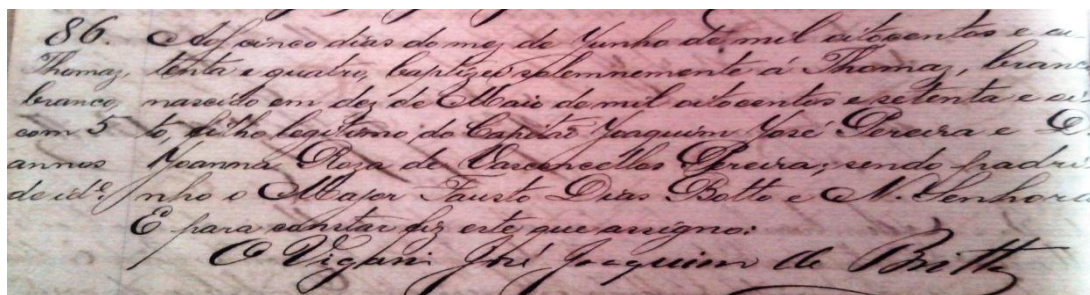 86. Aos cinco dias do mez de Junho de mil oitocentos e oi
Thomaz, tenta e quatro, baptizei solemnemente á Thomaz, branc
branco, nascido em dez de Maio de mil oitocentos e setenta e oi
com 5 to, filho legitimo do Capitão Joaquim José Pereira e D.
annos Joanna Roza de Vasconcellos Pereira; sendo padri
de id.e nho o Major Fausto Dias Botto e N. Senhora
E para constar fiz este que assigno:
O Vigario José Joaquim de Britto